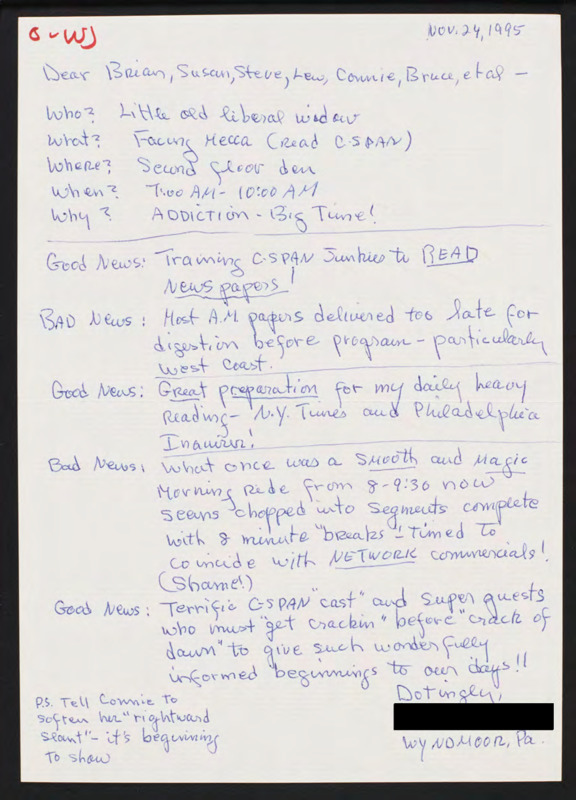 O-WJ
Nov. 24, 1995
Dear Brian, Susan, Steve, Lew, Connie, Bruce, et al —
Who? Little old liberal widow
What? Facing Mecca (Read C-SPAN)
Where? Second floor den
When? 7:00 AM - 10:00 AM
Why? ADDICTION - Big Time!
Good News: Training C-SPAN Junkies to READ
Newspapers!
BAD News: Most A.M papers delivered too late for
digestion before program - particularly
West Coast.
Good News: Great preparation for my daily heavy
Reading - N.Y. Times and Philadelphia
Inquirer!
Bad News: What once was a Smooth and Magic
Morning Ride from 8-9:30 now
seems chopped into segments complete
with 8 minute "breaks" - timed to
coincide with NETWORK commercials!
(Shame!)
Good News: Terrific C-SPAN "cast" and super guests
who must "get crackin" before "crack of
dawn" to give such wonderfully
informed beginnings to our days!!
Dotingly,
Wyndmoor, Pa.
P.S. Tell Connie to
soften her "rightward
slant" - it's beginning
to show